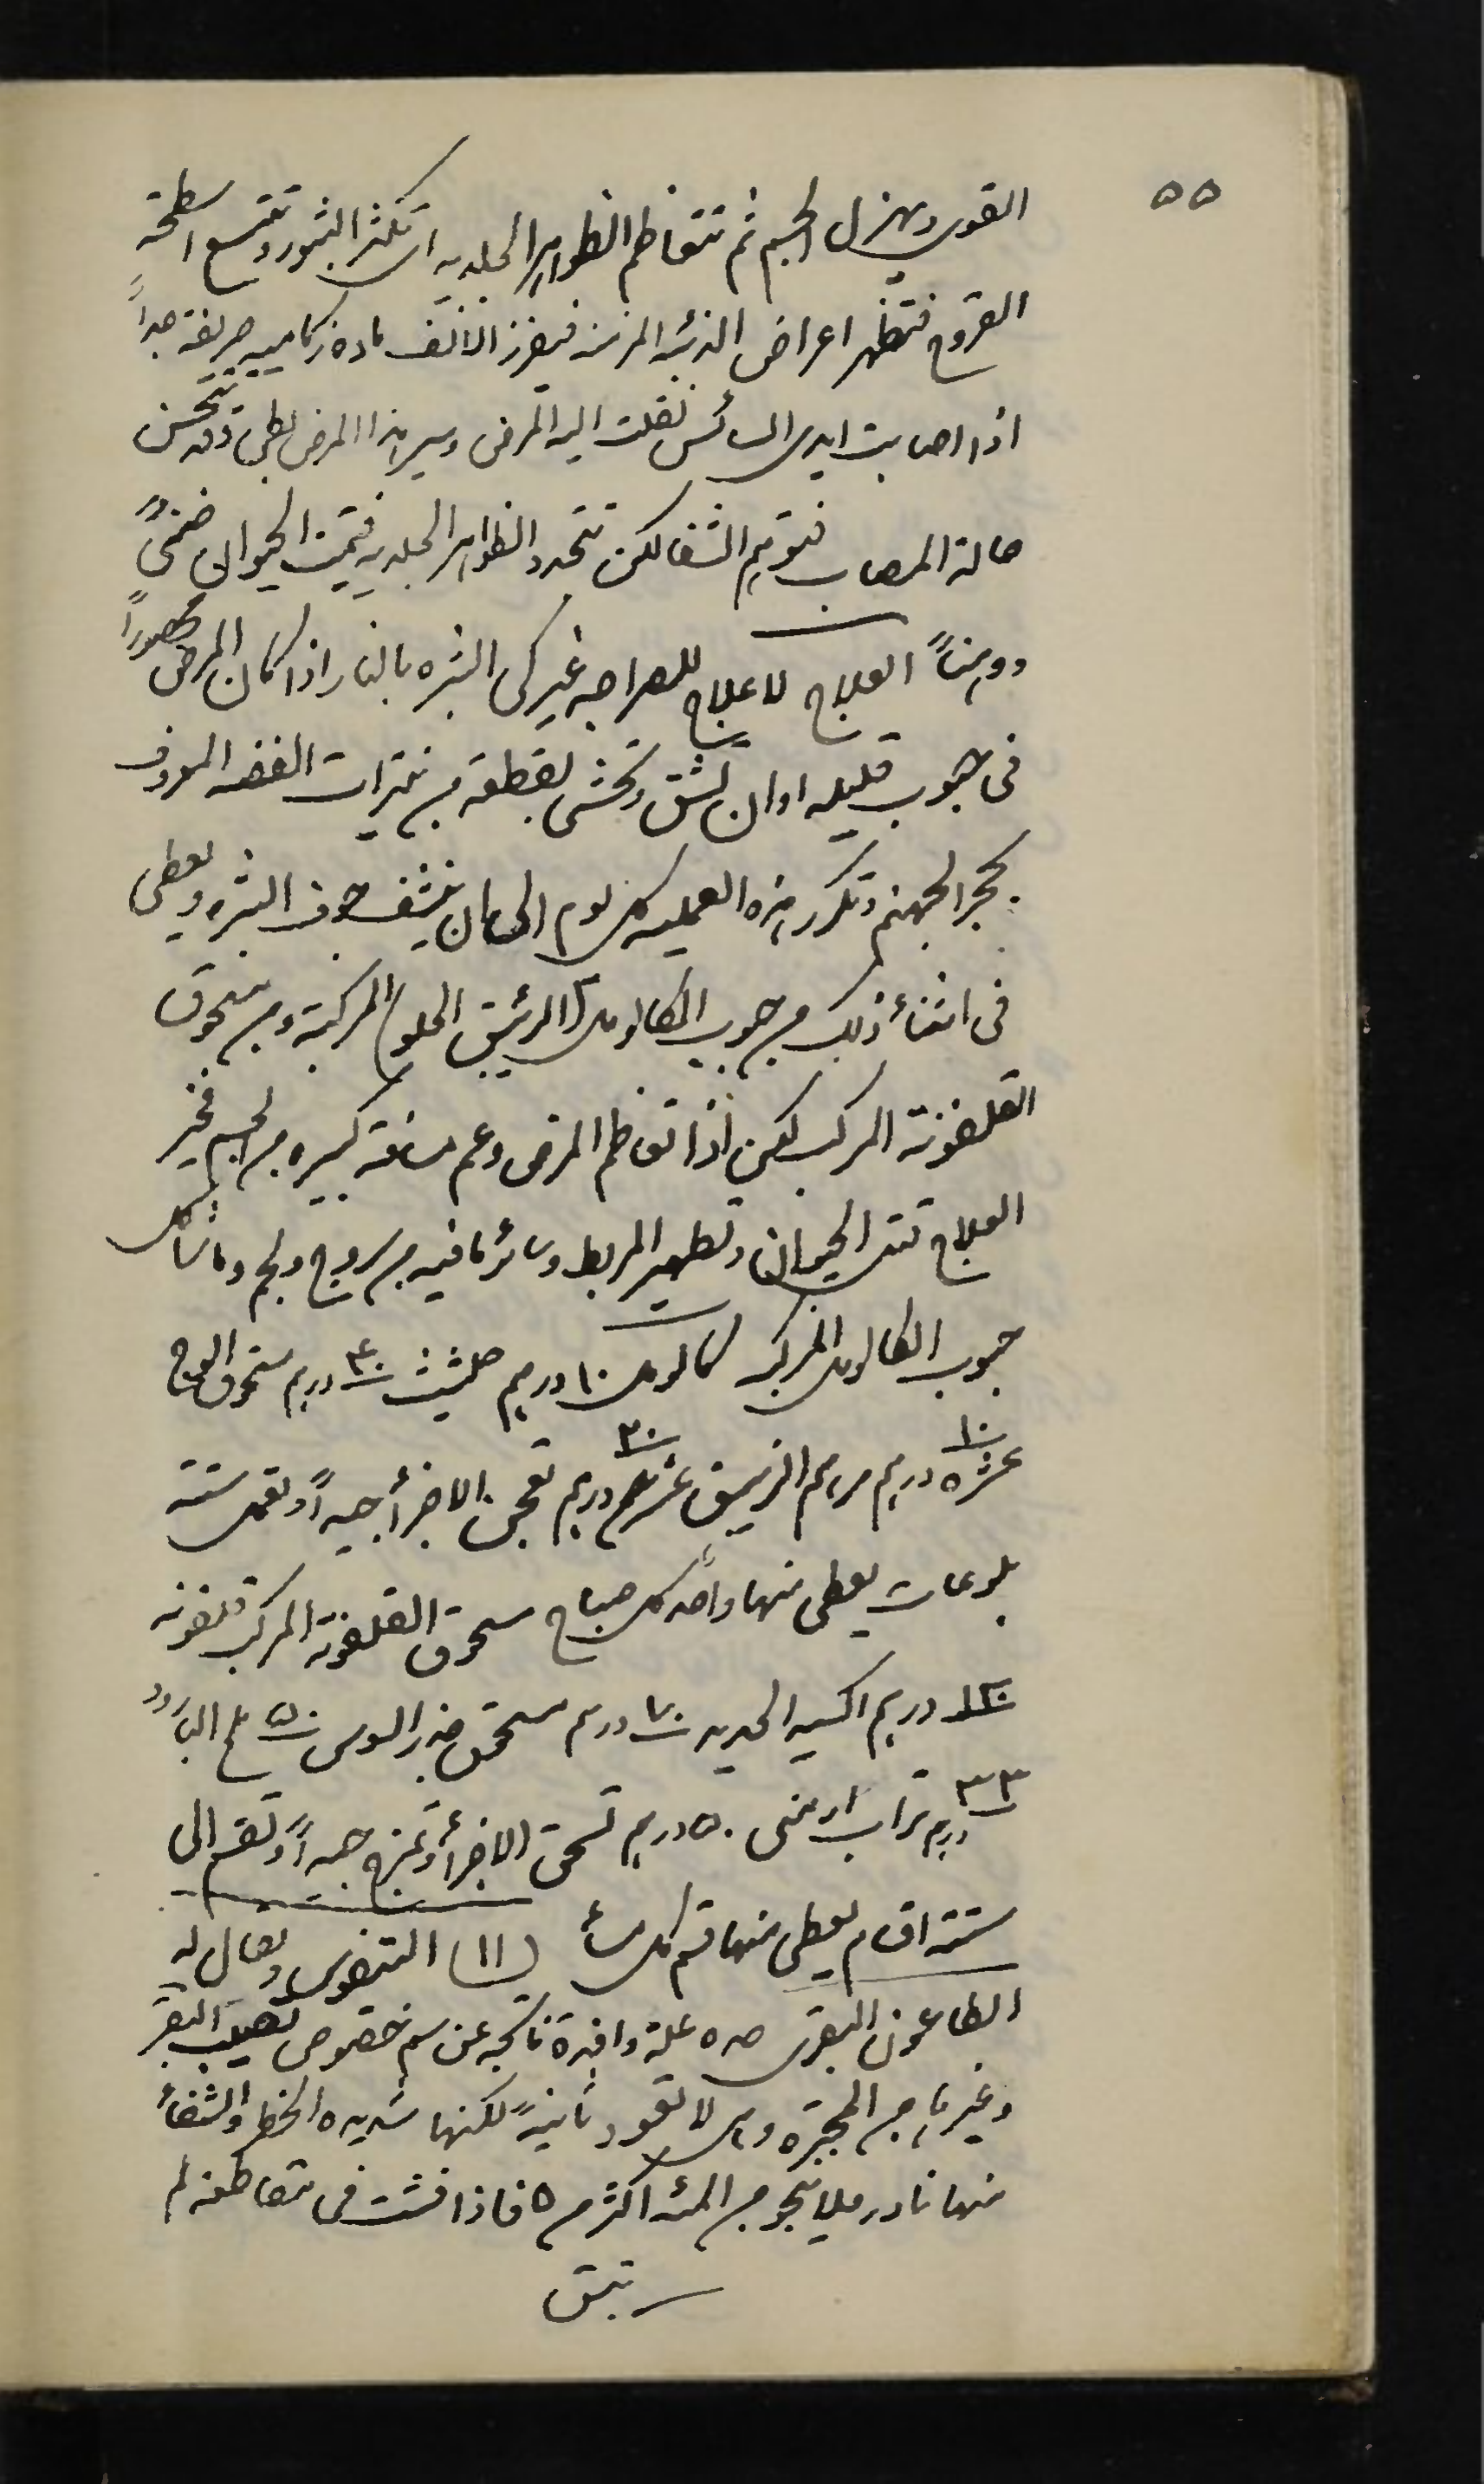 ٥٥
القوى ويهزل الجسم ثم تتعاظم الظواهر الجلديه اى تكثر البثور وتتسع اسطحة
القروح فتظهر اعراض الذئبه المزمنه فيفرز الانف ماده زكاميه حريفه جداً
اذا اصابت ايدى السائس نقلت اليه المرض وسير هذا المرض بطئ وقد تتحسن
حالة المصاب فتوهم الشفا لكن تتجدد الظواهر الجلديه فتميت الحيوان ضنىً
ووهناً العلاج لا علاج للسراجه غير كى البثره بالنار اذا كان المرض محصوراً
فى حبوب قليله او ان تشق وتحشى بقطعة من نيترات الفضه المعروف
بحجر الجهنم وتكرر هذه العمليه كل يوم الى ان ينشف جوف البثره ويعطى
فى اثنأ ذلك من حبوب الكالومل (الزئبق الحلو) المركبة ومن مسحوق
القلفونة المركب لكن اذا تعاظم المرض وعم مسافة كبيره من الجسم فخير
العلاج قتل الحيوان وتطهير المربط وسائر ما فيه من سروج ولجم وما شاكل
حبوب الكالومل المركبه كالومل ١٠ درهم حلتيت ٤٠ درهم مسحوق
١٠ عشره درهم مرهم الزيبق ٣٠ درهم تعجن الاجزأ جيداً وتعمل ستة
بلوعات يعطى منها واحده كل صباح مسحوق القلفونة المركب قلفونه
درهم اكسيد الحديد ٧٠ درهم مسحوق جذر السوس ٥٠ ملح البارود
٣٣ درهم تراب ارمنى ٥٠ درهم تسحق الاجزأ وتمزج جيداً وتقسم الى
ستة اقسام يعطى منها قسم كل مسأ (١١) التيفوس ويقال له
الطاعون البقرى هذه علة وافدة ناتجه عن سم خصوصى تصيب البقر
وغيرها من المجتره وهى لا تعود ثانيةً لكنها شديده الخطر والشفأ
منها نادر فلا ينجو من المئه اكثر من ٥ فاذا فشت فى مقاطعه لم
تبق